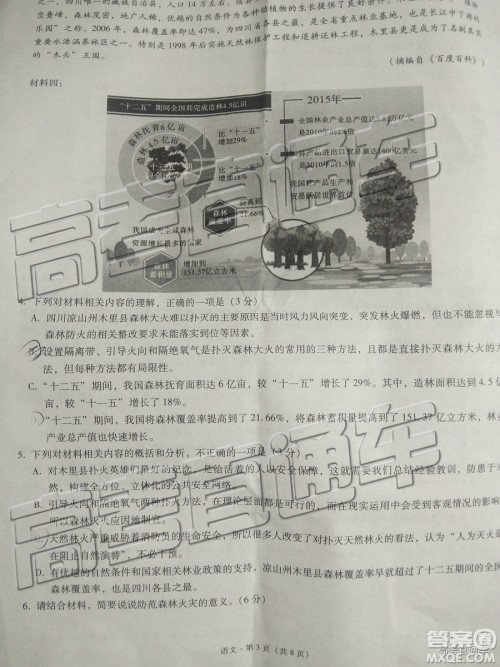 峦叠嶂，森林茂密，地广人稀，优越的自然条件为各种
乐园”之称。2006年，森林覆盖率达47%，是全省重点林业基地，也是长江中下游的
要水源涵养林区之一。特别是1998年后实施天然林保护工程和退耕还林工程，木里更是成为了名
的“木头”王国。
（摘编自《百度百科》）
材料四：
“十二五”期间全国共完成造林4.5亿亩
森林抚育6亿亩
造林4.5亿亩
十二五
比“十一五”
增加29%
比“十一五”
增加18%
森林
覆盖率
21.66%
我国成为全球森林
资源增长最多的国家
森林
蓄积量
增加到
151.37亿立方米
2015年
全国林业产业总产值达
是2010年的
林产品进出口贸易额达1400亿美元
是2010年的1.5倍
我国林产品生产和
贸易跃居世界首位
4. 下列对材料相关内容的理解，正确的一项是（3分）
A. 四川凉山州木里县森林大火难以扑灭的主要原因是当时风力风向突变，突发林火爆燃，但也不能忽视与
森林防火的相关整改要求未能落实到位等因素。
B. 设置隔离带、引导火向和隔绝氧气是扑灭森林大火的常用的三种方法，且都是直接扑灭森林大火的方
法，但每种方法都有局限性。
C. “十二五”期间，我国森林抚育面积达6亿亩，较“十一五”增长了29%。其中，造林面积达到4.5亿
较“十一五”增长了18%。
D. “十二五”期间，我国将森林覆盖率提高到了21.66%，将森林蓄积量提高到了151.37亿立方米，
产业总产值也快速增长。
5. 下列对材料相关内容的概括和分析，不正确的一项是（3分）
A. 对木里县扑火英雄们最好的纪念，是
B. 引导火向和隔绝氧气两种扑火方法，在理论层面都是可行的，但在实际操作中往往会受到客观情况的影
所以森林灭火应因地制宜。
C. 天然林火严重威胁着消防员的生命安全，所以一度改变了人们对扑灭天然林火的看法，认为“人为灭火是
在阻止自然演替”，不必去救。
D. 有优越的自然条件和国家相关林业政策的支持，凉山州木里县森林覆盖率超过了十二五期间的全国
所以也是四川各县之最。
6. 请结合材料，简要说说防范森林火灾的意义。（6分）
语文·第3页（共8页）
高考直通车
高考直通车
高考直通车
答案圈